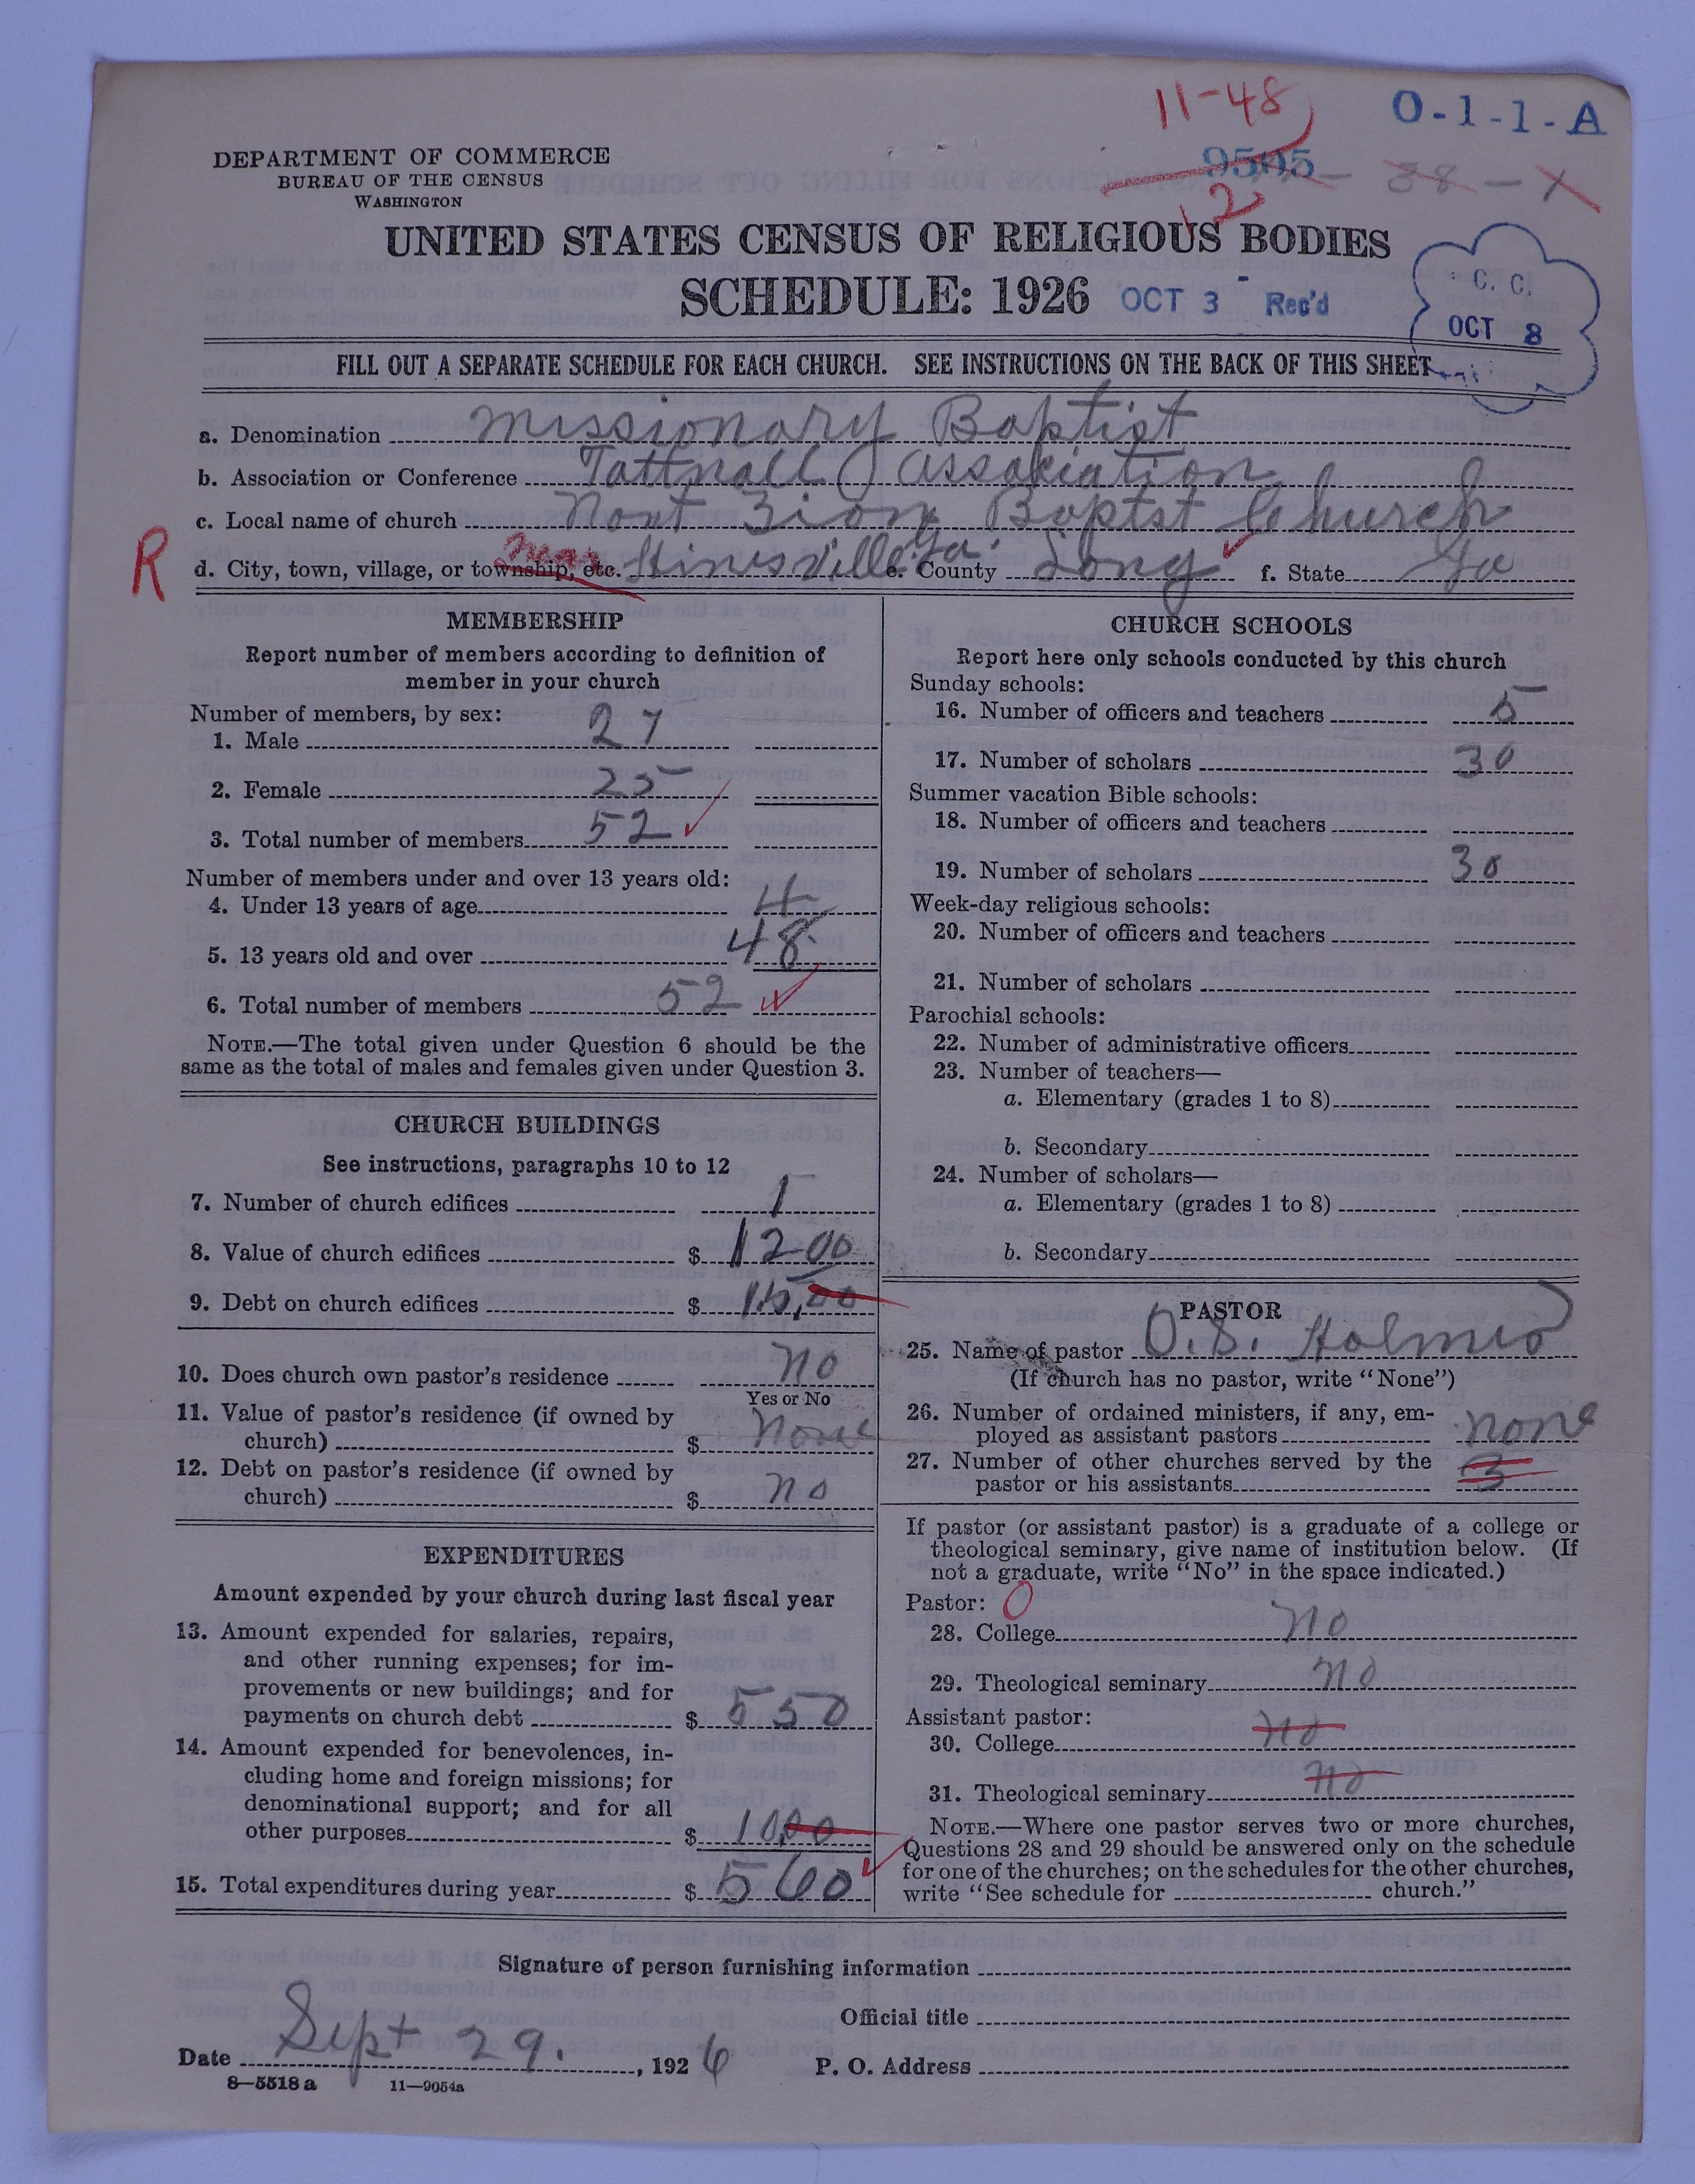 11-48
O-1-1-A
DEPARTMENT OF COMMERCE
BUREAU OF THE CENSUS
WASHINGTON
9505 - 38 - 1
2
UNITED STATES CENSUS OF RELIGIOUS BODIES
SCHEDULE: 1926 OCT 3 - Rec'd
C. C.
OCT 8
FILL OUT A SEPARATE SCHEDULE FOR EACH CHURCH. SEE INSTRUCTIONS ON THE BACK OF THIS SHEET
a. Denomination Missionary Baptist
b. Association or Conference Tattnall Association
c. Local name of church Mont Zion Baptst Church
R
near
d. City, town, village, or township, etc. Hinesville Ga. e. County Long f. State Ga
MEMBERSHIP
Report number of members according to definition of
member in your church
Number of members, by sex:
1. Male 27
2. Female 25
3. Total number of members 52
Number of members under and over 13 years old:
4. Under 13 years of age 4
5. 13 years old and over 48
6. Total number of members 52
NOTE.—The total given under Question 6 should be the
same as the total of males and females given under Question 3.
CHURCH BUILDINGS
See instructions, paragraphs 10 to 12
7. Number of church edifices 1
8. Value of church edifices $ 1200
9. Debt on church edifices $ 15,00
10. Does church own pastor's residence no
Yes or No
11. Value of pastor's residence (if owned by
church) $ None
12. Debt on pastor's residence (if owned by
church) $ no
EXPENDITURES
Amount expended by your church during last fiscal year
13. Amount expended for salaries, repairs,
and other running expenses; for im-
provements or new buildings; and for
payments on church debt $ 550
14. Amount expended for benevolences, in-
cluding home and foreign missions; for
denominational support; and for all
other purposes $ 10,00
15. Total expenditures during year $ 560
CHURCH SCHOOLS
Report here only schools conducted by this church
Sunday schools:
16. Number of officers and teachers 5
17. Number of scholars 30
Summer vacation Bible schools:
18. Number of officers and teachers
19. Number of scholars 30
Week-day religious schools:
20. Number of officers and teachers
21. Number of scholars
Parochial schools:
22. Number of administrative officers
23. Number of teachers—
a. Elementary (grades 1 to 8)
b. Secondary
24. Number of scholars—
a. Elementary (grades 1 to 8)
b. Secondary
PASTOR
25. Name of pastor O. S. Holmes
(If church has no pastor, write "None")
26. Number of ordained ministers, if any, em-
ployed as assistant pastors none
27. Number of other churches served by the
pastor or his assistants 3
If pastor (or assistant pastor) is a graduate of a college or
theological seminary, give name of institution below. (If
not a graduate, write "No" in the space indicated.)
Pastor: 0
28. College no
29. Theological seminary no
Assistant pastor:
30. College no
31. Theological seminary no
NOTE.—Where one pastor serves two or more churches,
Questions 28 and 29 should be answered only on the schedule
for one of the churches; on the schedules for the other churches,
write "See schedule for church."
Signature of person furnishing information
Official title
Date Sept 29. , 1926 P. O. Address
8—5518 a 11—9054a